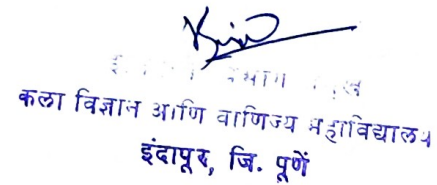 कला विज्ञान आणि वाणिज्य महाविद्यालय
इंदापूर, जि. पूणें